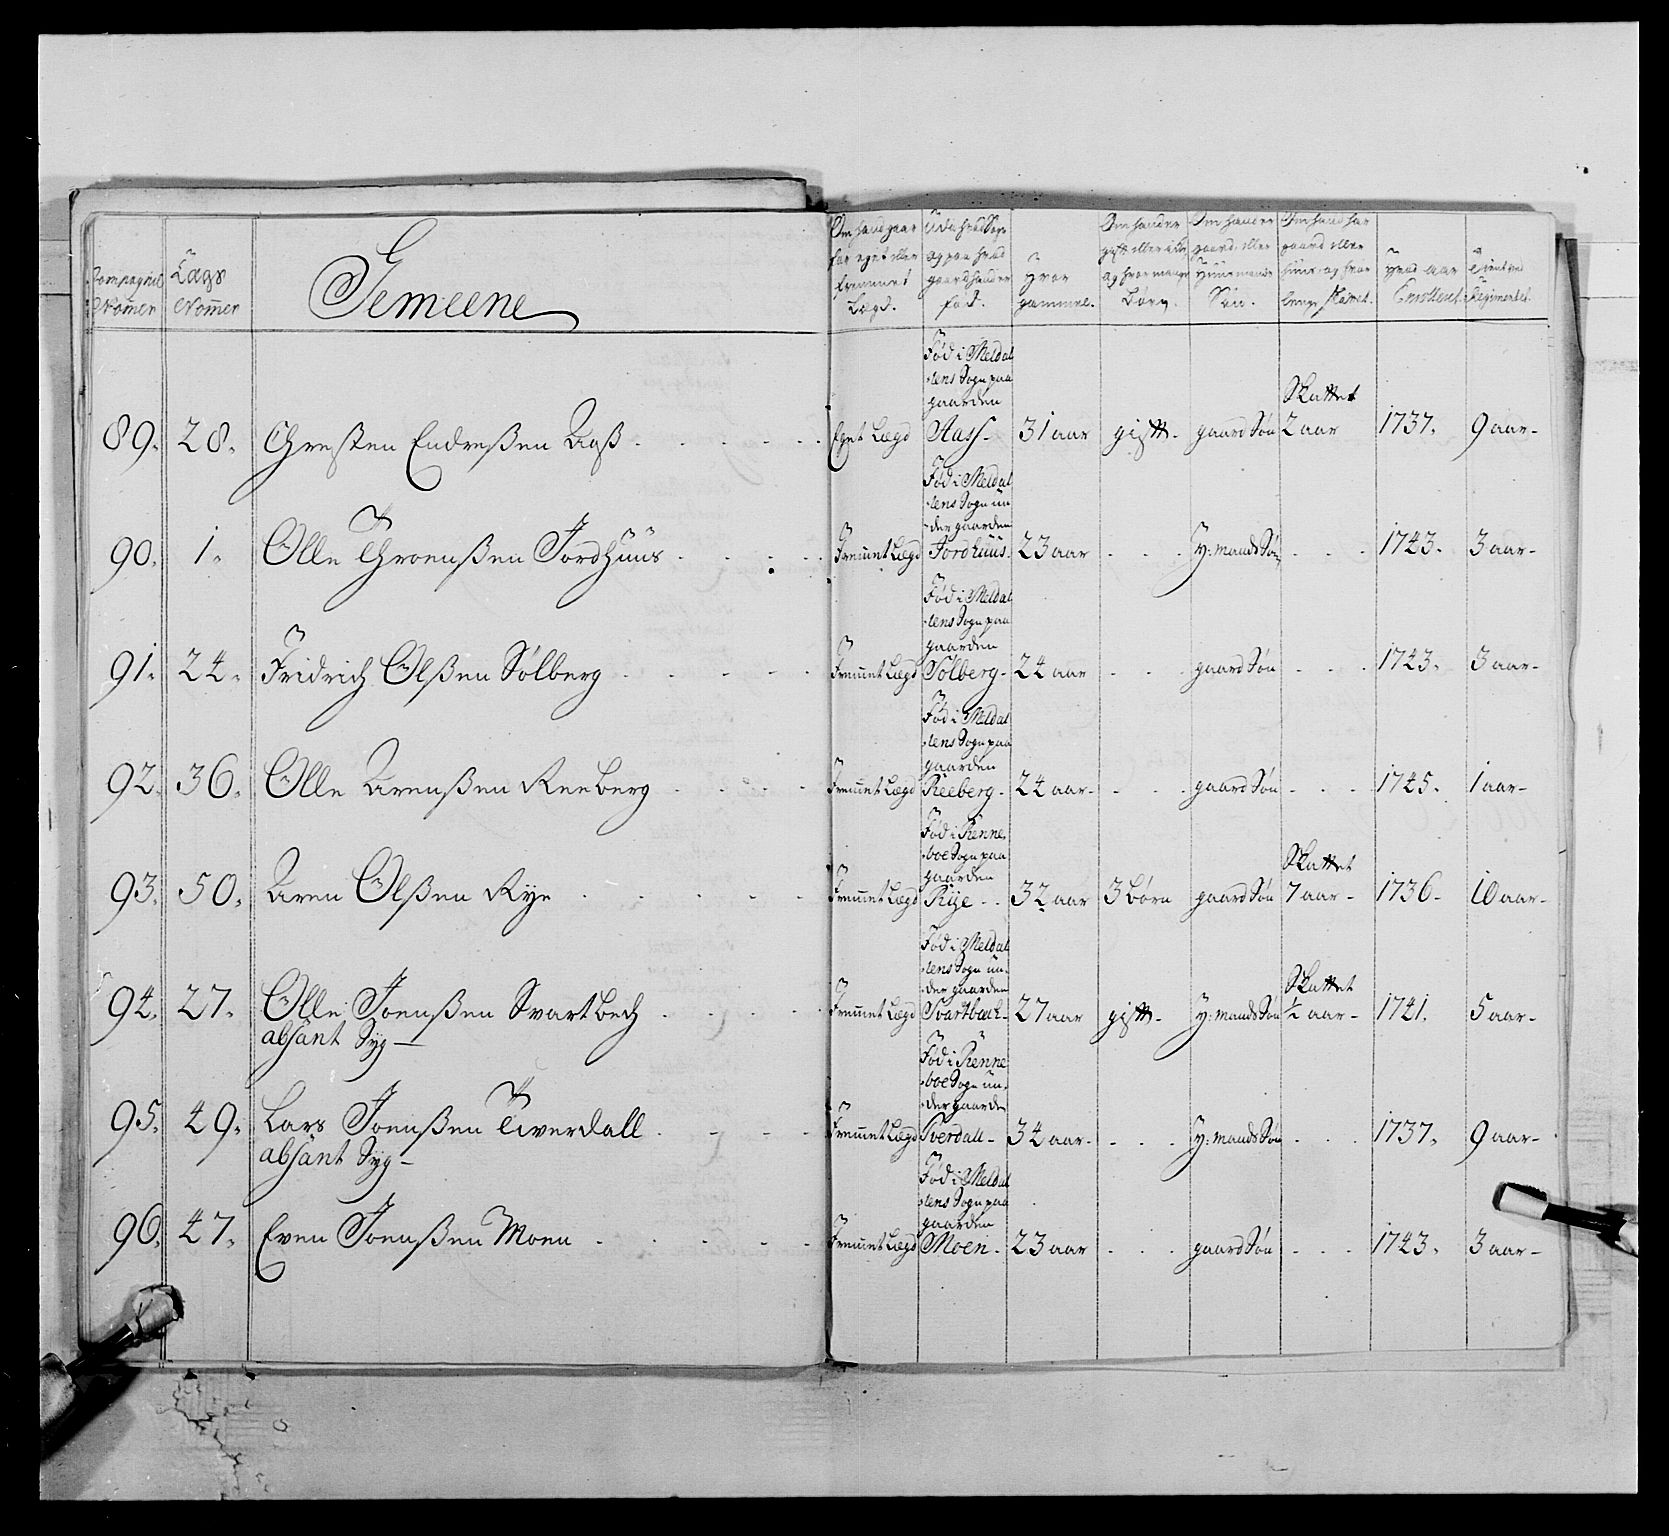 Compagnie Nomer
Lægs Nomer
Gemeene
Om hand gaar for eget eller fremmet Lægd.
Udi hvad Sogn og paa hvad gaard hand er fød.
Hvor gammel.
Om hand er gift eller ikke og hvor mange Børn.
Om hand er gaard eller Huusmands Søn.
Om hand har gaard eller huus og hvor lenge skattet.
Hvad aar Enrolleret.
Tient ved Regimentet.
89. 28. Chresten Endreßen Aaß Eget Lægd Fød i Meldalens Sogn paa gaarden Aass 31 aar gift gaard Søn Skattet 2 aar 1737. 9 aar
90. 1. Olle Throenßen Jordhuus Fremmet Lægd Fød i Meldalens Sogn under gaarden Jordhuus 23 aar H: mands Søn 1743. 3 aar
91. 24. Fridrich Olßen Sølberg Fremmet Lægd Fød i Meldalens Sogn paa gaarden Sølberg 24 aar gaard Søn 1743. 3 aar
92. 36. Olle Arenßen Reeberg Fremmet Lægd Fød i Meldalens Sogn paa gaarden Reeberg 24 aar gaard Søn 1745. 1 aar
93. 50. Aren Olßen Rye Fremmet Lægd Fød i Renneboe Sogn paa gaarden Rye 32 aar 3 Børn gaard Søn Skattet 7 aar 1736 10 aar
94. 27. Olle Joenßen Svartbech Fremmet Lægd Fød i Meldalens Sogn under gaarden Svartbæch 27 aar gift H: mands Søn Skattet ½ aar 1741. 5 aar
absant Syg
95. 49. Lars Joenßen Tverdall Fremmet Lægd Fød i Renneboe Sogn under gaarde Tverdall 34 aar H: mands Søn 1737. 9 aar
absant Syg
96. 47. Even Joenßen Moen Fremmet Lægd Fød i Meldalens Sogn paa gaarden Moen 23 aar gaard Søn 1743. 3 aar